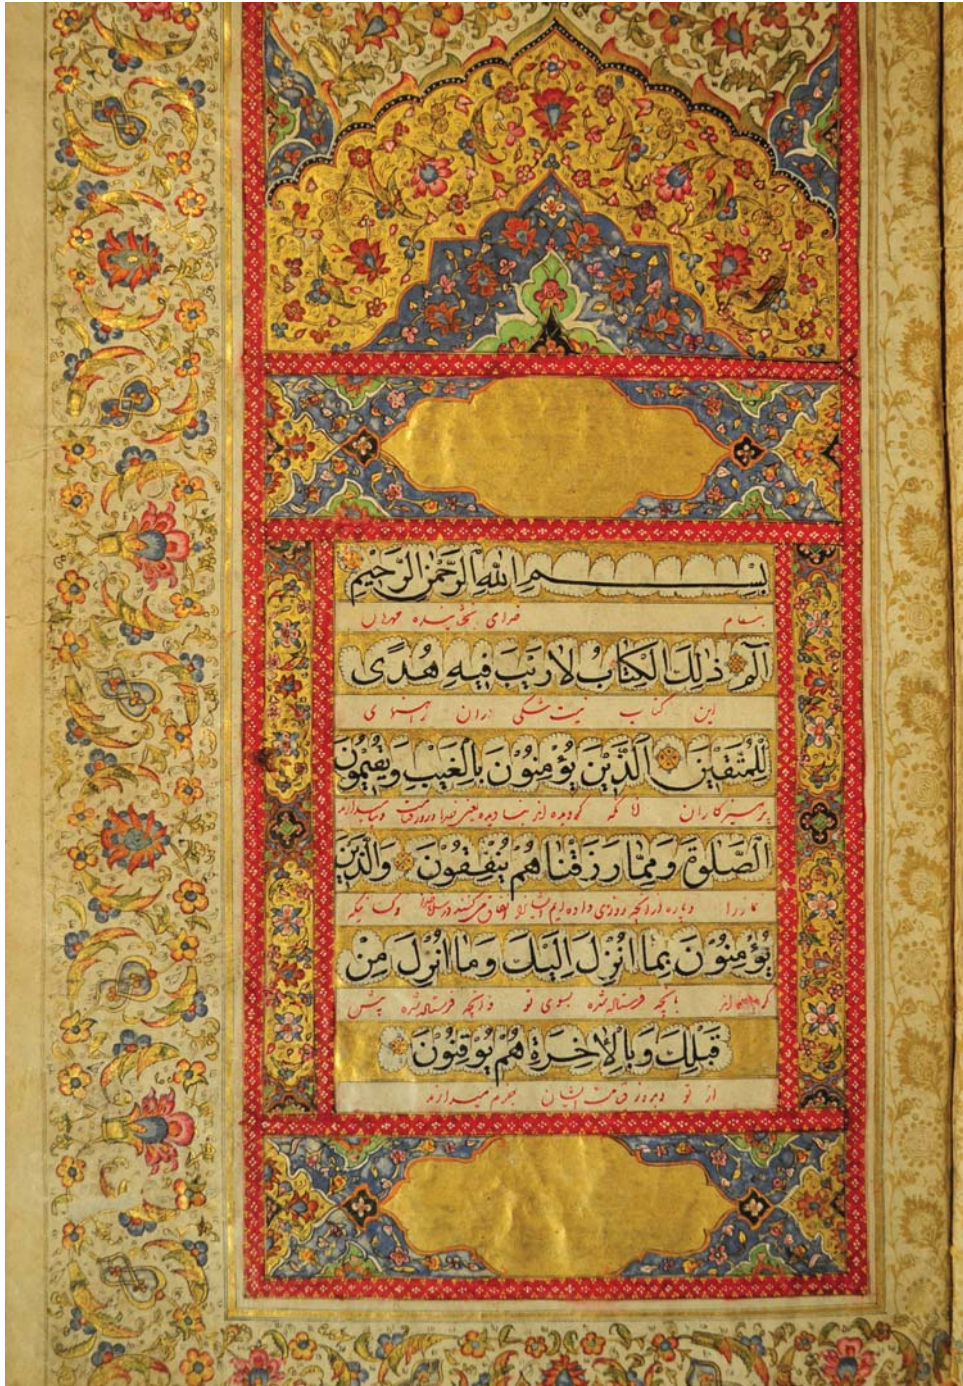 بِسْمِ اللهِ الرَّحْمٰنِ الرَّحِيْمِ
بنام خدای بخشاینده مهربان
الٓمٓ ذٰلِكَ الْكِتَابُ لَا رَيْبَ فِيْهِ هُدًى
این کتاب نیست شکی دران راهنمای
لِلْمُتَّقِيْنَ الَّذِيْنَ يُؤْمِنُوْنَ بِالْغَيْبِ وَيُقِيْمُوْنَ
پرهیزکاران
الصَّلٰوةَ وَمِمَّا رَزَقْنَاهُمْ يُنْفِقُوْنَ وَالَّذِيْنَ
نماز را روزی داده ایم
يُؤْمِنُوْنَ بِمَا اُنْزِلَ اِلَيْكَ وَمَا اُنْزِلَ مِنْ
بانچه فرستاده شده بسوی تو وانچه فرستاده شده پیش
قَبْلِكَ وَبِالْاٰخِرَةِ هُمْ يُوْقِنُوْنَ
از تو